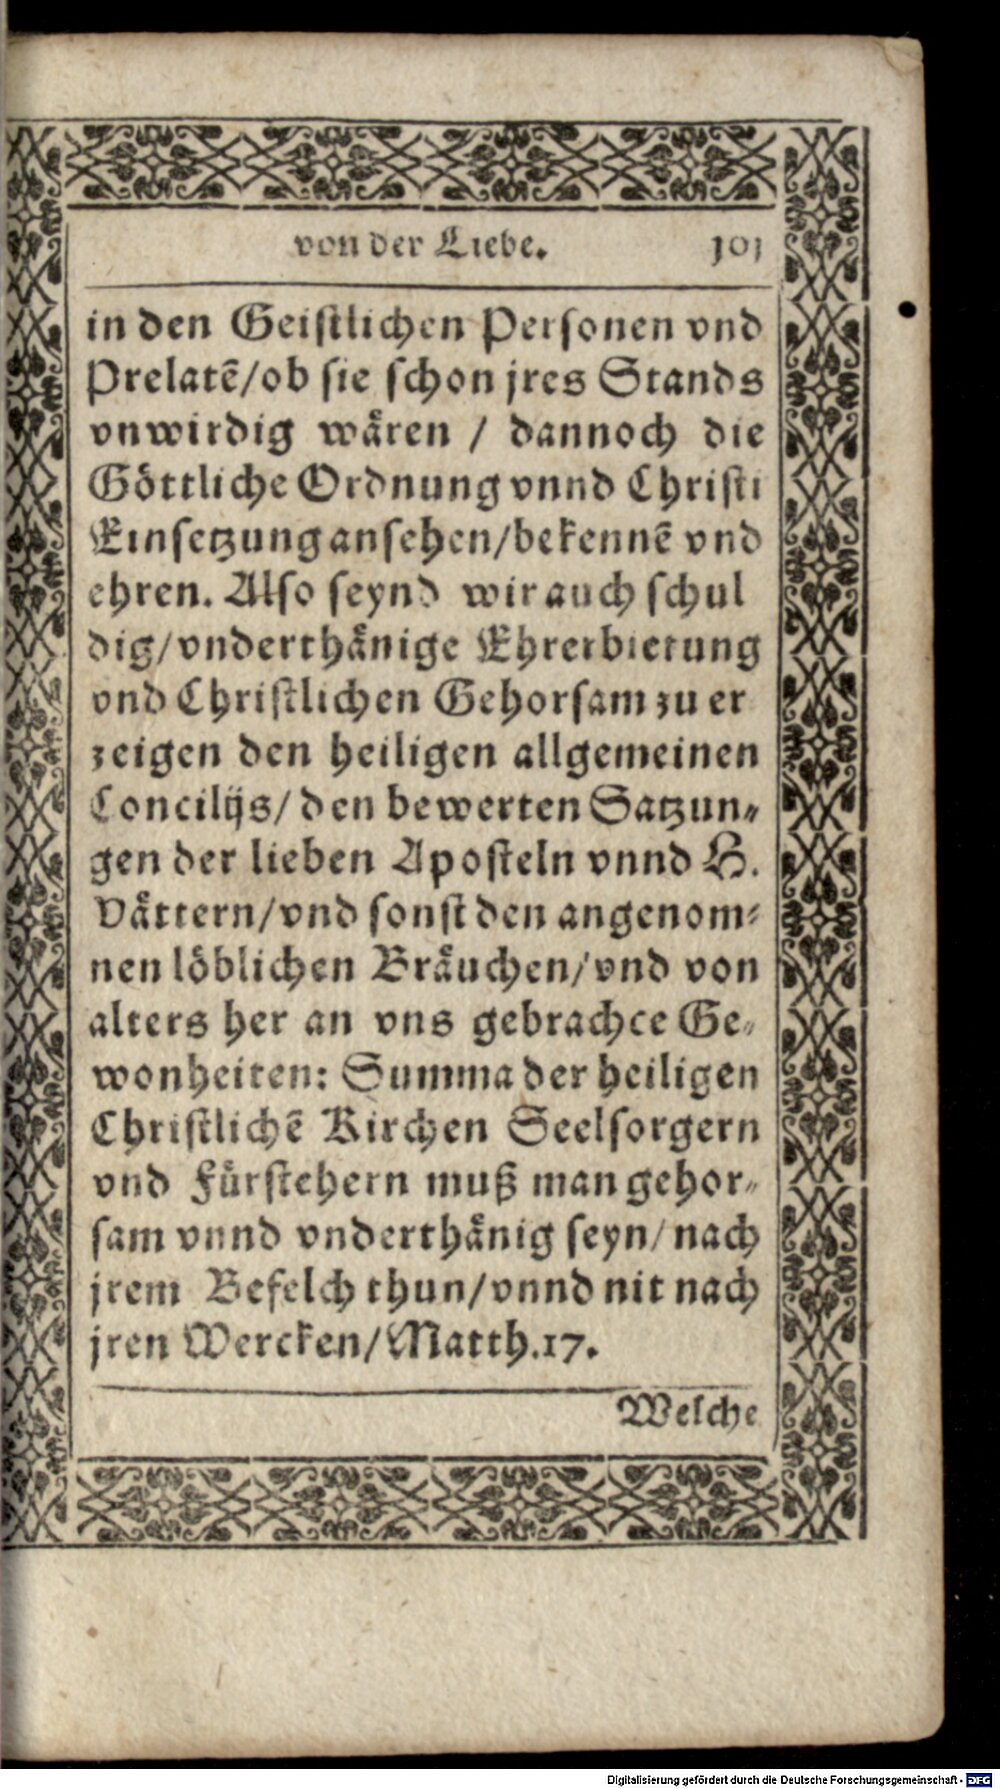 von der Liebe. 101
in den Geistlichen Personen vnd
Prelatẽ/ob sie schon jres Stands
vnwirdig wären / dannoch die
Göttliche Ordnung vnnd Christi
Einsetzung ansehen/bekennẽ vnd
ehren. Also seynd wir auch schul
dig/vnderthänige Ehrerbietung
vnd Christlichen Gehorsam zu er
zeigen den heiligen allgemeinen
Concilijs/ den bewerten Satzun-
gen der lieben Aposteln vnnd H.
Vättern/vnd sonst den angenom-
nen löblichen Bräuchen/vnd von
alters her an vns gebrachte Ge-
wonheiten: Summa der heiligen
Christlichẽ Kirchen Seelsorgern
vnd Fürstehern muß man gehor-
sam vnnd vnderthänig seyn/nach
jrem Befelch thun/vnnd nit nach
jren Wercken/Matth.17.
Welche
Digitalisierung gefördert durch die Deutsche Forschungsgemeinschaft - DFG